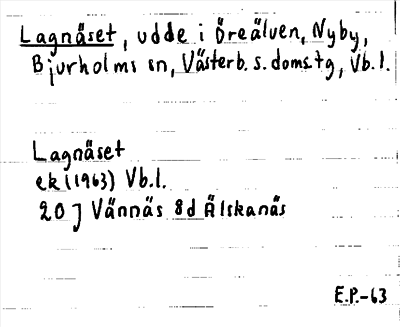 Lagnäset, udde i Öreälven, Nyby,
Bjurholms sn, Västerb. s. doms.tg, Vb. l.
Lagnäset
ek (1963) Vb. l.
20 J Vännäs 8d Älskanäs
E.P.-63